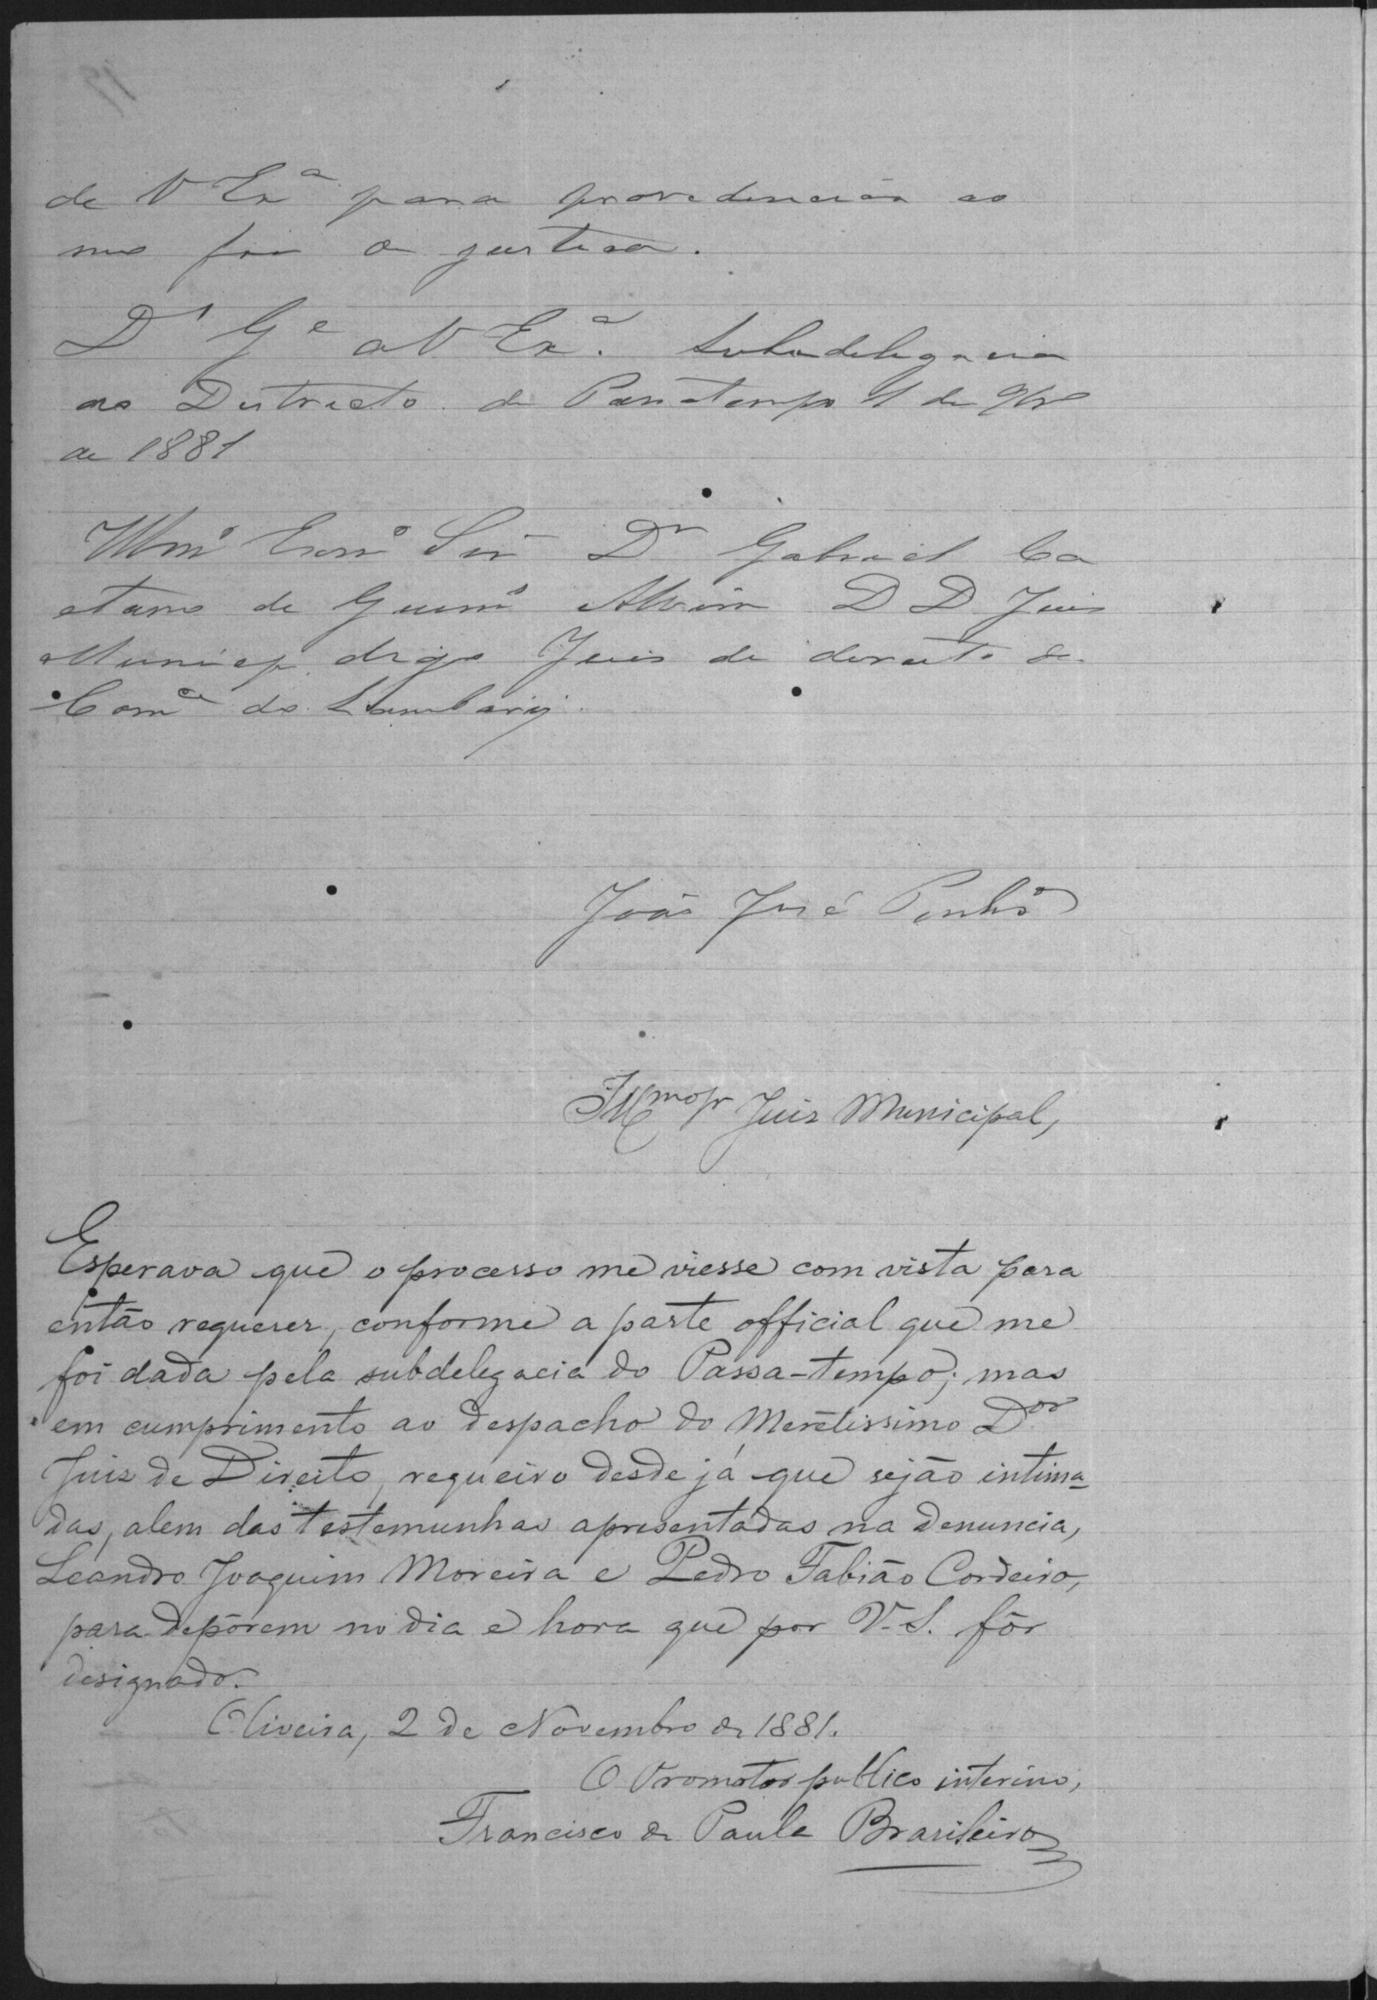 de V Exª para providencias co
mo for a justica.
Dˢ Gᵉ a V Exª. Subdelegacia
do Destricto de Passatempo 1 de 9brº
de 1881
Illmº Exmº Snr Dr Gabriel Ca
etano de Guimˢ Alvim D D Juis
Municip digo Juis de dereito da
Comᶜᵃ do Lambary
João José Penhº
Illᵐᵒ Sr Juiz Municipal,
Esperava que o processo me viesse com vista para
então requerer, conforme a parte official que me
foi dada pela subdelegacia do Passa-tempo; mas
em cumprimento ao despacho do Meretissimo Dᵒʳ
Juiz de Direito, requeiro desde já que sejão intima-
das, alem das testemunhas apresentadas na denuncia,
Leandro Joaquim Moreira e Pedro Fabião Cordeiro,
para depôrem no dia e hora que por V. S. fôr
designado.
Oliveira, 2 de Novembro de 1881.
O Promotor publico interino,
Francisco de Paula Brasileiro